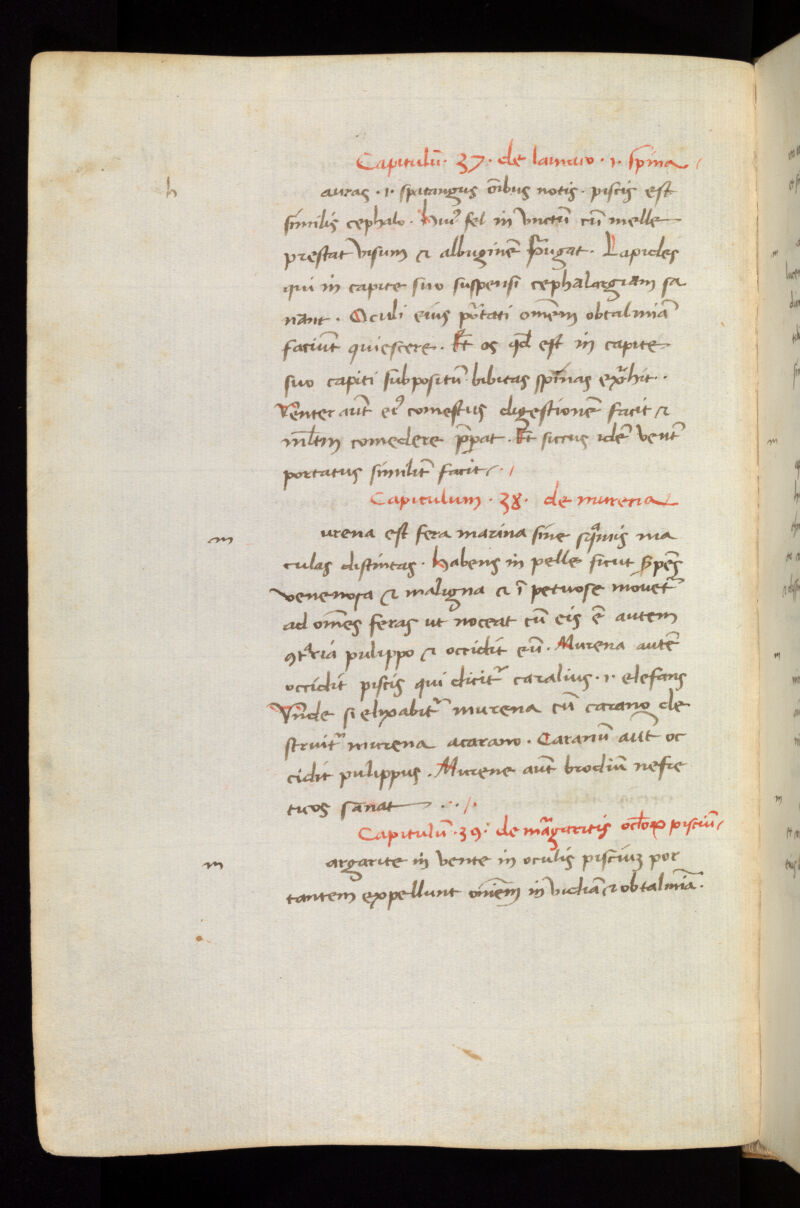 Capitulū · 37 · de lauraro · i · spina
h
auras · i · spatangus oībus notis · piscis est
similis cephalo · huiꝰ fel in unctū cū melle
prestat visum et albuginē purgat · Lapides
qui in capite suo suspensi cephalargiam sa
nant · Oculi eius portati omēm obtalmiā
faciūt quiescere · Et os qd est in capite
suo capiti subpositū bibitas spinas extrahit ·
Venter aūt eiꝰ comestus digestionē facit et
mltm comedere prepat · Et siccus idē ventꝛ
portatus similitꝛ facit
Capitulum · 38 · de murena
m
urena est fera marina sine squamis ma
culas distinctas · habens in pelle sicut serpēs
venenosa et maligna et īpetuose movetꝛ
ad omēs feras ut noceat cū eis ē autem
ꝯtraria pulippo et occidit eū · Murena autē
occidit piscis qui dicitꝛ caralius · i · elefans
Unde si elixabitꝛ murena cū carano de
struitꝛ murena acarano · Caranū aūt oc
cidit pulippus · Murene aūt brodiū nefre
ticos sanat
Capitulū · 39 · de margaritis oculoꝝ pisciū
m
argarite in vente in oculis pisciuꝫ por
tantem expellunt omēm in vidiā et obtalmiā ·